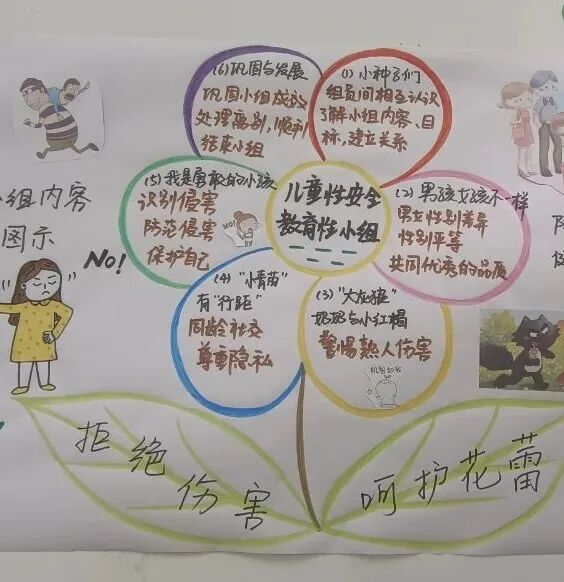 儿童性安全
教育性小组
(1) 小种子们
组员间相互认识
了解小组内容、目
标,建立关系
(2) 男孩女孩不一样
男女性别差异
性别平等
共同优秀的品质
(3) "大灰狼"
奶奶与小红帽
警惕熟人伤害
机智如我
(4) "小青苗"
有"行距"
同龄社交
尊重隐私
(5) 我是勇敢的小孩
识别侵害
防范侵害
保护自己
NO!
(6) 巩固与发展
巩固小组成效
处理离别,顺利
结束小组
小组内容
图示
No!
拒绝伤害
呵护花蕾